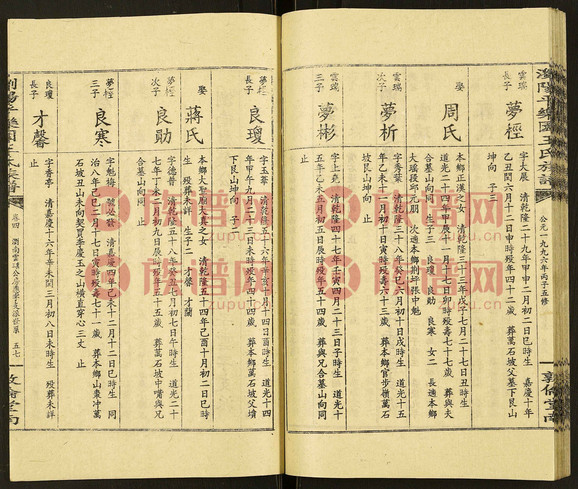 瀏陽平樂園王氏族譜
公元一九九六年丙子五修
敦倫堂
雲瑞
長子
夢桱
字大展 清乾隆二十九年甲申十二月初二日巳時生 嘉慶十年
乙丑閏六月十二日申時歿年四十二歲 葬萬石坡父墓下艮山
坤向 子三
娶
周氏
本鄉正漢之女 清乾隆三十三年戊子十二月十七日丑時生
道光二十四年甲辰十一月十七日卯時歿壽七十七歲 葬與夫
合墓山向同 生子三 良瓊 良勛 良寒 女二 長適本鄉
大瑤段邱元朋 次適本鄉荆坪張中魁
雲瑞
次子
夢析
字秀蓁 清乾隆三十八年癸巳六月初十日戌時生 道光十五
年乙未十一月初十日寅時歿壽六十三歲 葬本鄉官步嶺萬石
坡艮山坤向 止
雲瑞
三子
夢彬
字上堯 清乾隆四十七年壬寅四月二十三日子時生 道光十
五年乙未三月初五日辰時歿年五十四歲 葬與兄合墓山向同
止
夢桱
長子
良瓊
字玉華 清乾隆五十六年辛亥十月二十四日酉時生 道光十四
年甲午九月二十三日未時歿年四十四歲 葬萬石坡父墳
下艮山坤向 子二
娶
蔣氏
本鄉大聖廟大真之女 清乾隆五十四年己酉十月初二日巳時
生 歿葬未詳 生子二 才馨 才蘭
夢桱
次子
良勛
字德普 清乾隆五十八年癸丑七月初七日午時生 道光二十
七年丁未二月初九日辰時歿年五十五歲 葬萬石坡中嘴與兄
合墓山向同 止
夢桱
三子
良寒
字魁梅 清嘉慶四年己未十二月十二日巳時生 同
治八年己巳二月十七日寅時歿壽七十一歲 葬本鄉山棗冲萬
石坡丑山未向契買李慶玉之山橫直穿心三丈 止
良瓊
長子
才馨
字香亭 清嘉慶十六年辛未閏三月初八日未時生 歿葬未詳
止
瀏陽平樂園王氏族譜
卷四
五七
敦倫堂